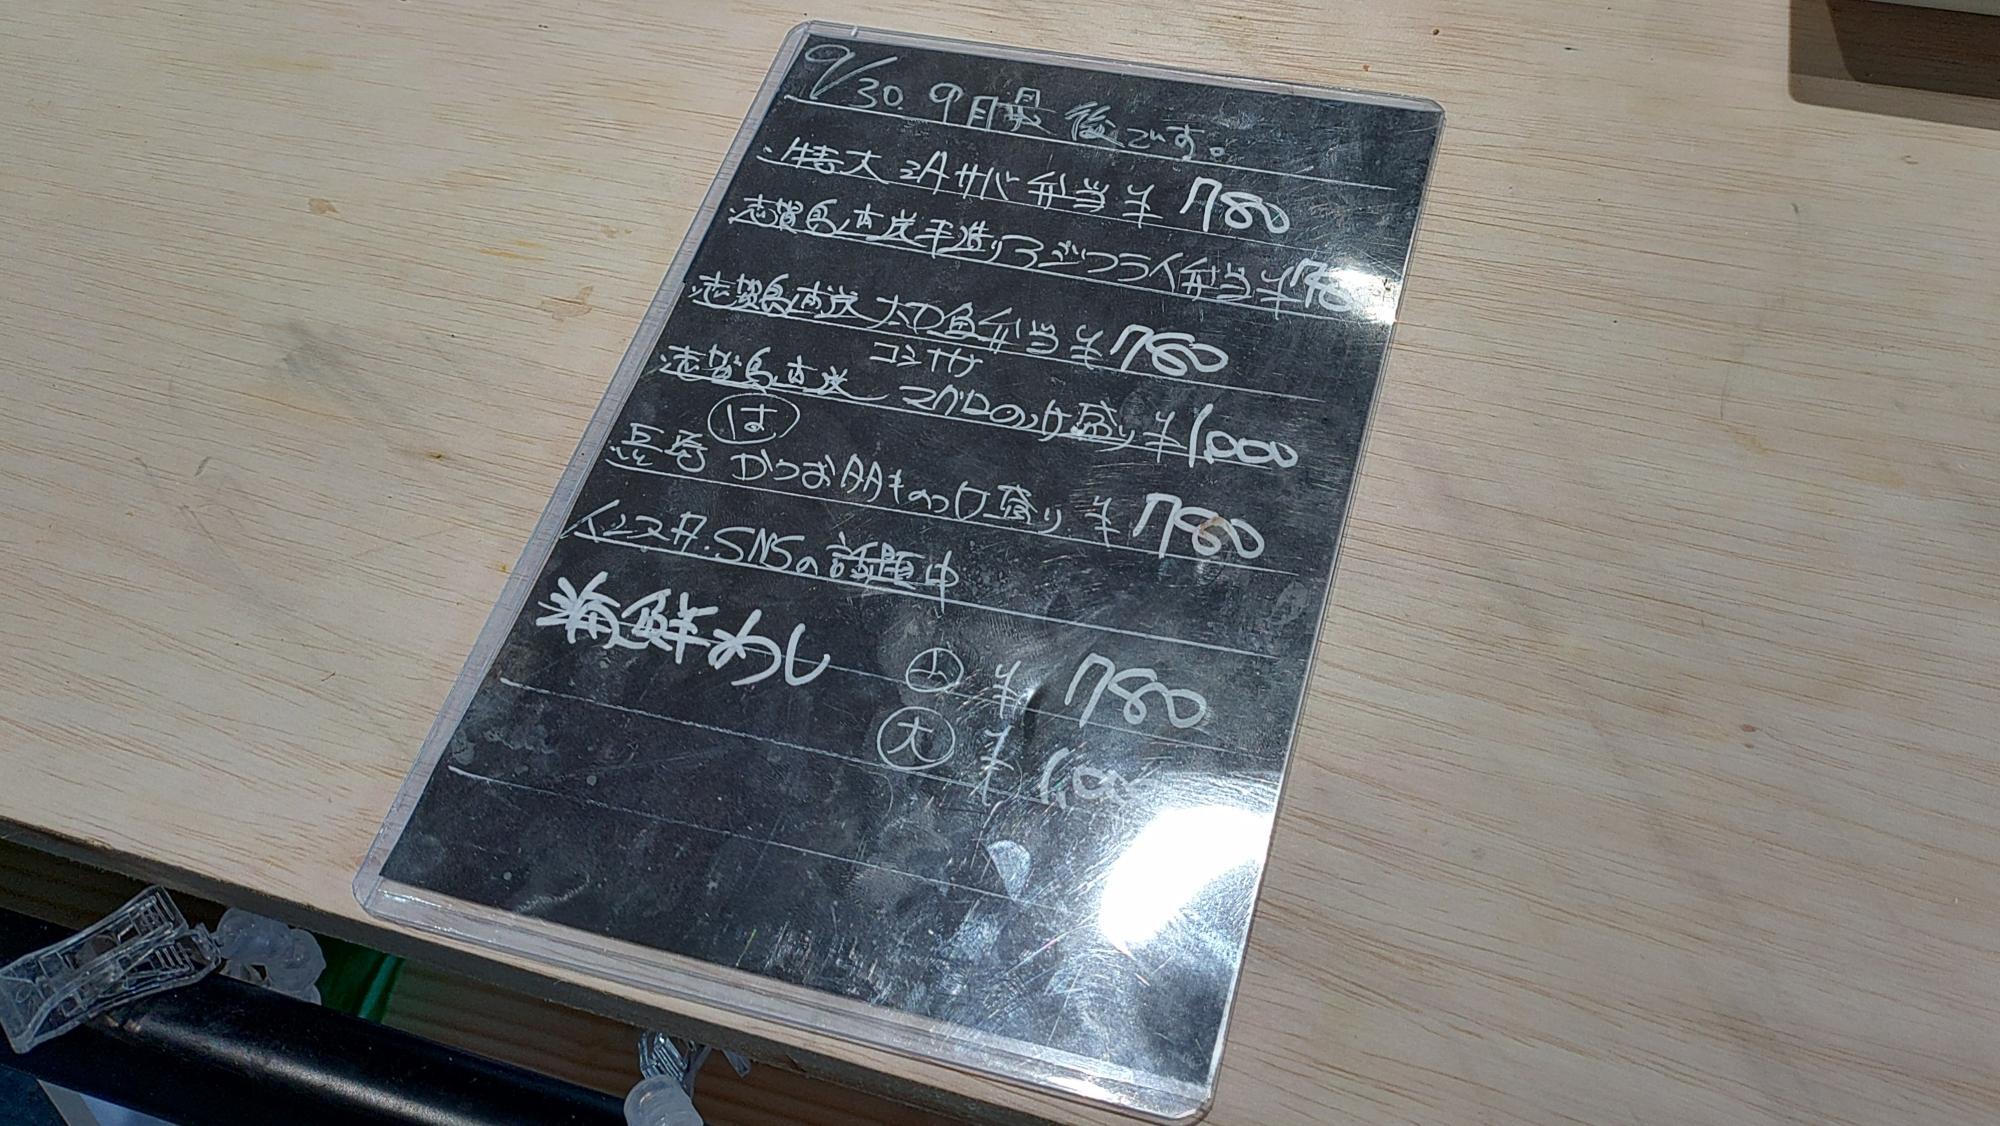 9/30. 9月最後です。
特大 塩サバ弁当 ¥780
志賀島直送 手造りアジフライ弁当 ¥78
志賀島直送 太刀魚弁当 ¥780
コシナガ
志賀島直送 マグロのっけ盛り ¥1,000
は
長崎 かつお のっけ盛り ¥780
インスタ.SNSの話題中
海鮮めし 小 ¥780
大 ¥1,000